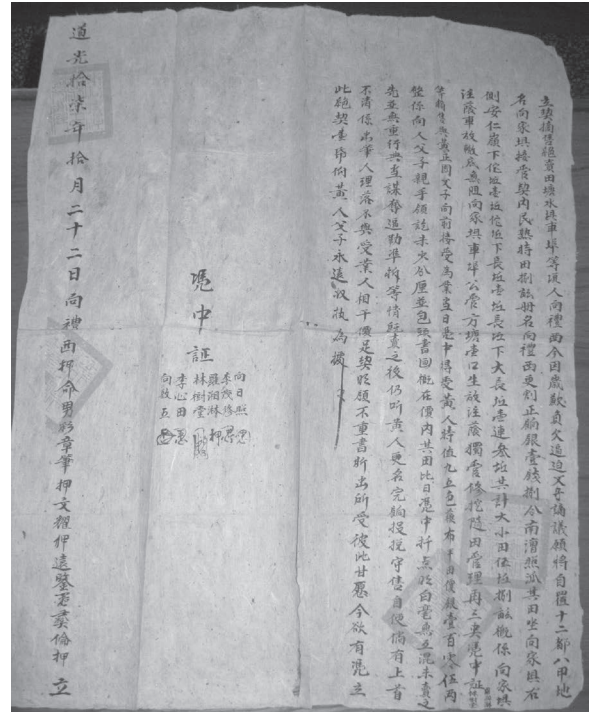 立契搞售絕賣田塘水垻車埠等項人向禮西今因歲歉負欠逼迫父子偹議願將自置十二都八甲地
名向家垻接管契內民熟時田捌畝册名向禮西更割正餉銀壹錢捌分南漕照派其田坐向家垻右
側安仁嶺下侘坵壹坵侘坵下長坵壹坵長坵下大長坵壹連叁坵共計大小田伍坵捌畝概係向家垻
注蔭車放徹底無阻向家垻車埠公管方塘壹口生放注蔭獨管修挖隨田管理再三央憑中証
等搞售與黃正國父子向前接受為業當日憑中得受黃人時值九五色 價銀壹百 伍兩
整係向人父子親手領訖未欠分厘並包頭書回概在價內其田比日憑中扦點明白毫無互混未賣之
先並無重行典當謀奪逼勒準拆等情既賣之後仍听黃人更名完餉侵挖守售自便倘有上首
不清係出筆人理落不與受業人相干價足契明領不重書扦出所受彼此甘愿今欲有憑立
此絕契壹帋付黃人父子永遠收執為據
憑中証
向日照
李茂修
羅湘林 押
林樹堂
李心田
向啟五
道光拾柒年拾月二十二日向禮西押命男彩章筆押文耀押遠鑒 彝倫押 立